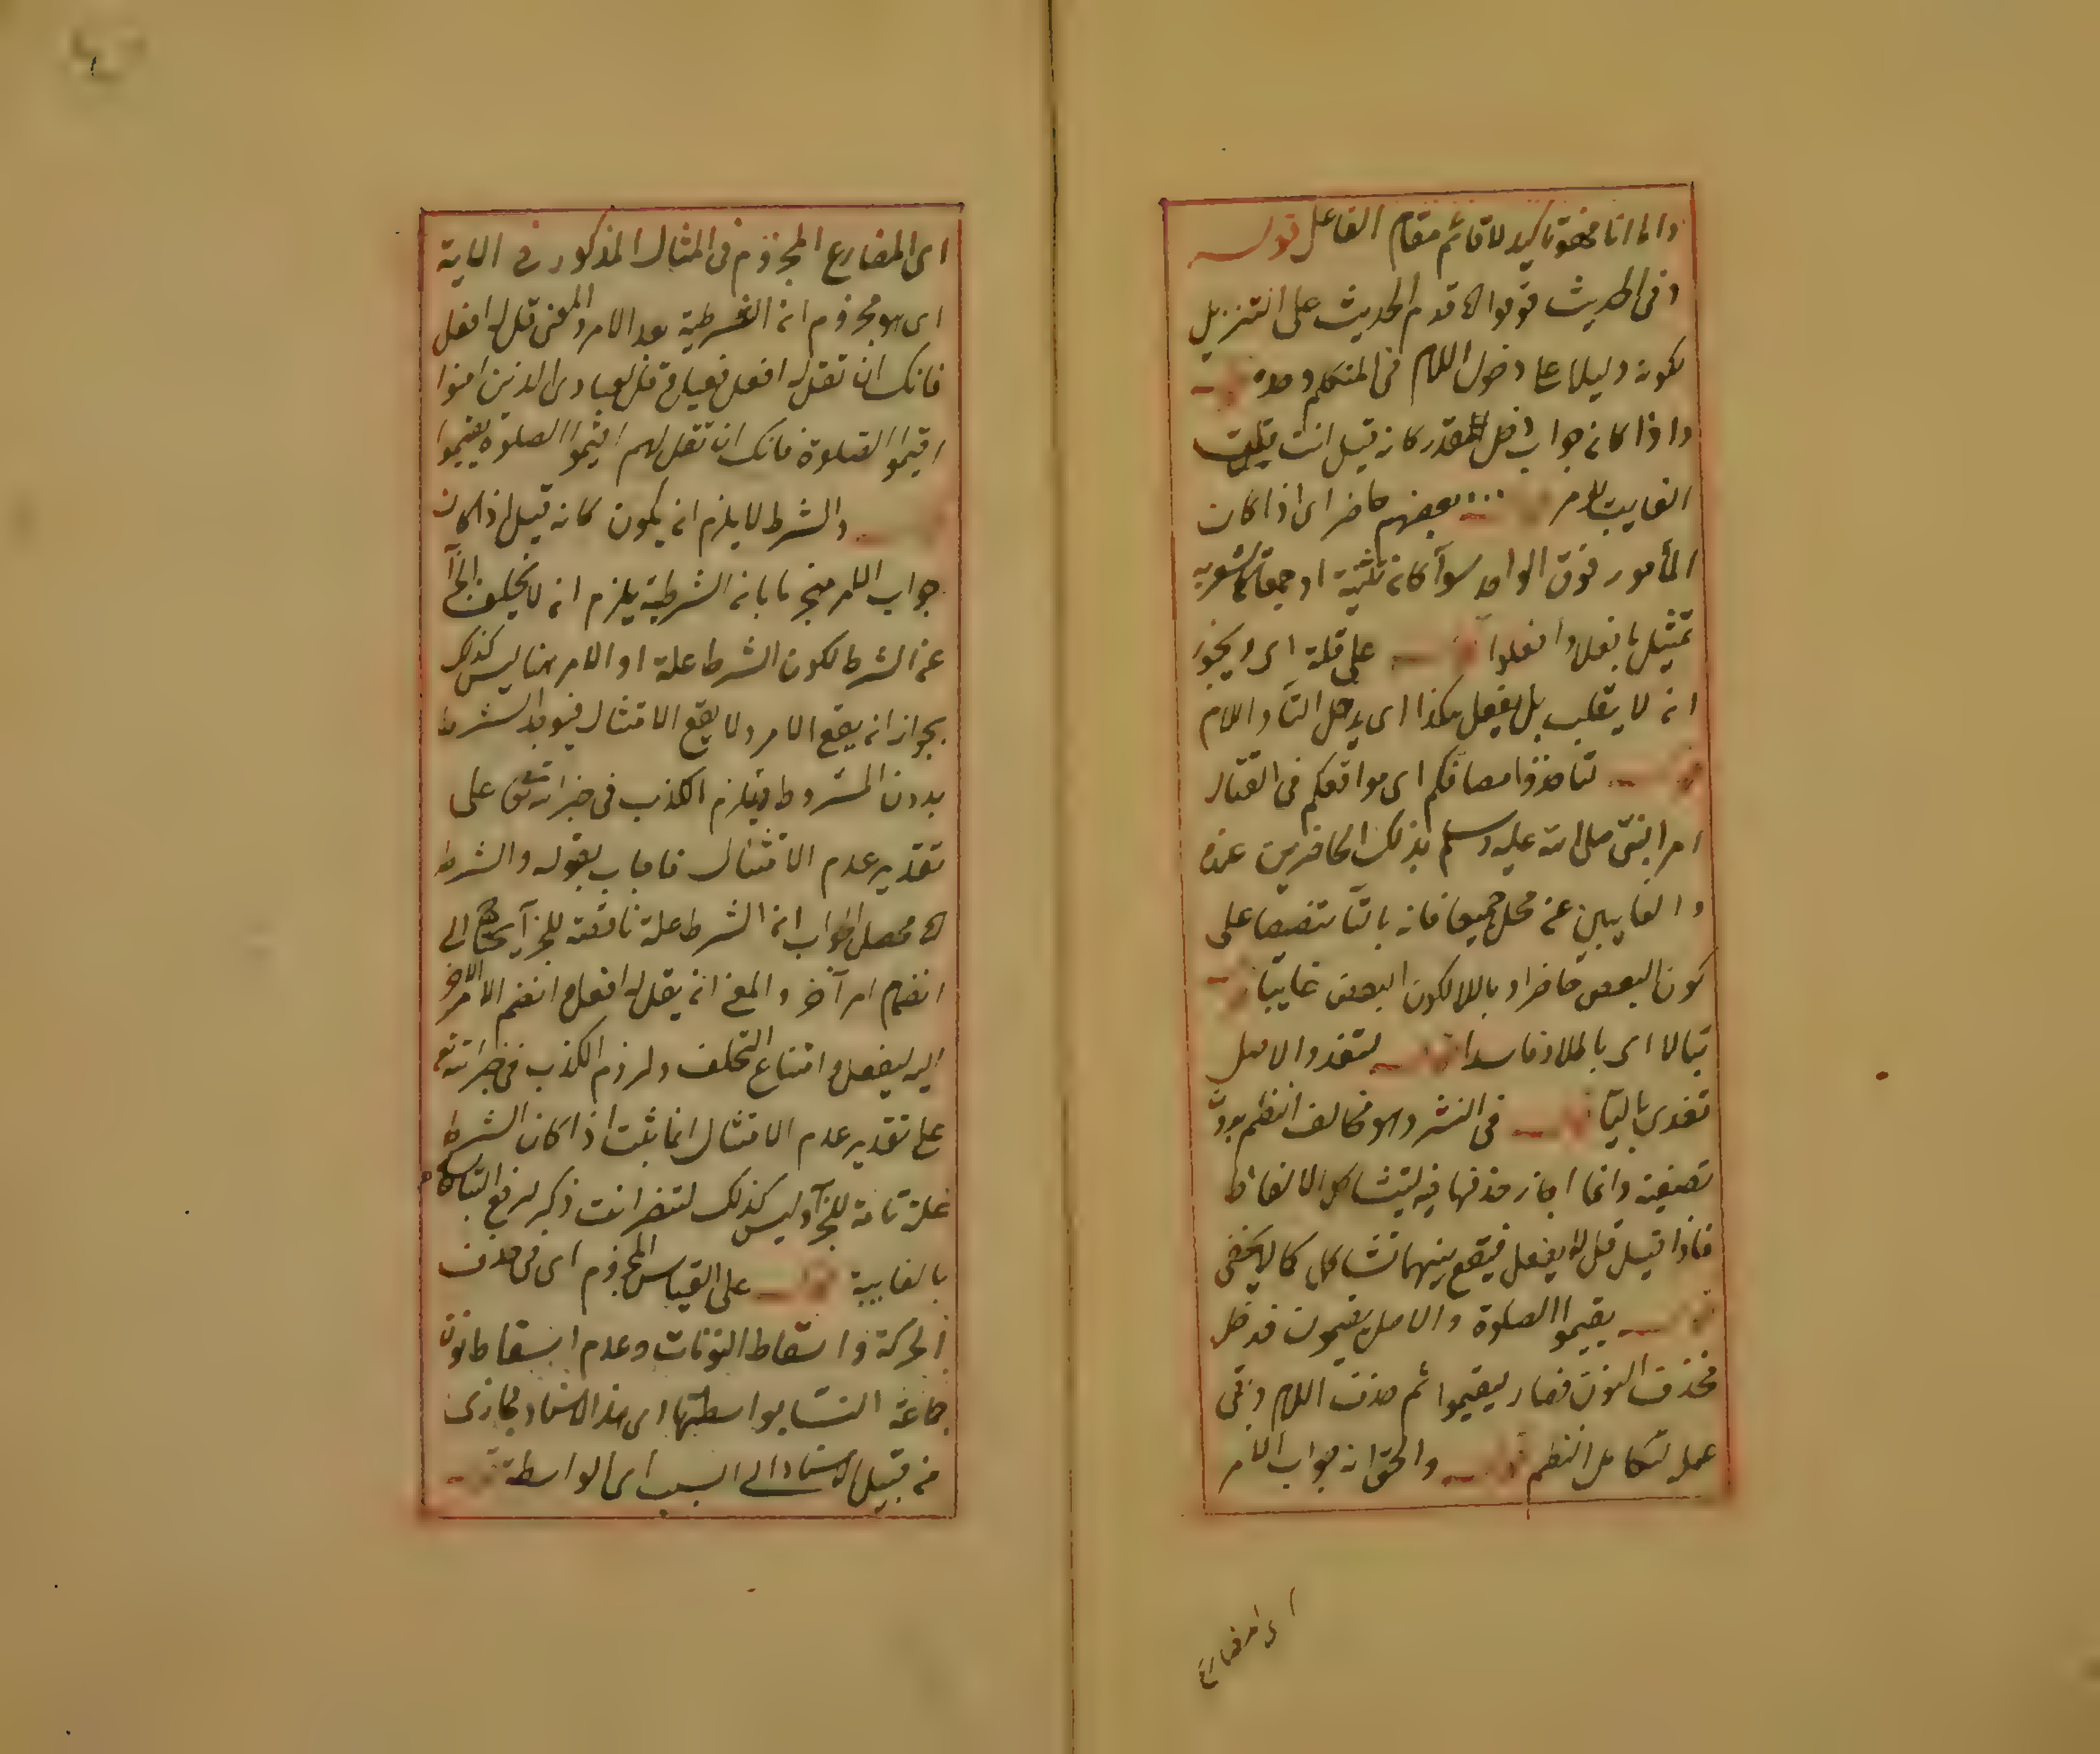 واما انا فهو تاكيد لا قائم مقام الفاعل قوله
وفى الحديث قوموا اه قدم الحديث على التنزيل
لكونه دليلا على دخول اللام فى المتكلم وحده
واذا كان جواب دخل مقدر كانه قيل انت قلت
الغايب للامر بعضهم حاضر اى اذا كان
المأمور فوق الواحد سوآ كان تثنية او جمعا
تمثيل بافعلا وافعلوا على قلة اى ويجوز
ان لا يقلب بل يفعل هكذا اى يدخل التاء واللام
لتاخذوا مصافكم اى مواقعكم فى القتال
امر النبى صلى الله عليه وسلم بذلك الحاضرين عنده
والغايبين عن محله جميعا فانه بالتاء تنصيصا على
كون البعض حاضرا وباللام لكون البعض غايبا
تبالا اى بالا وفاسدا لتفد والاصل
تفدى باليا فى النثر وهو مخالف النظم
وانما اجاز حذفها فيه ليتشاكل الالفاظ
فاذا قيل قل له يفعل فيقع بينهما تشاكل كما لا يخفى
يقيموا الصلوة والاصل يقيمون فدخل
فحذفت النون فصار ليقيموا ثم حذفت اللام وبقى
عمله لتكامل النظم والحق انه جواب الامر
اى المضارع
اى المضارع المجزوم فى المثال المذكور فى الاية
اى هو مجزوم ان الشرطية بعد الامر والمعنى قل له افعل
فانك ان تقل له افعل يفعل وقل لعبادى الذين امنوا
اقيموا الصلوة فانك ان تقل لهم اقيموا الصلوة يقيموا
والشرط لا يلزم ان يكون كانه قيل اذا كان
جواب الامر منجزما بان الشرطية يلزم ان لا يخلف الجزآ
عن الشرط لكون الشرط علة او الامر هنا ليس كذلك
بجواز ان يقع الامر ولا يقع الامتثال فيوجد الشرط
بدون المشروط فيلزم الكذب فى خبر الله تعالى على
تقدير عدم الامتثال فاجاب بقوله والشرط
اه محصل الجواب ان الشرط علة ناقصة للجزآ يحتاج الى
انضمام امر آخر والمعنى ان يقل له افعل وانضم الامر الاخر
اليه ليفعل وامتناع التخلف ولزوم الكذب فى خبر الله تعالى
على تقدير عدم الامتثال انما ثبت اذا كان الشرط
علة تامة للجزآ وليس كذلك لتضرانت ذكر لرفع
بالغايبة على القياس المجزوم اى فى حذف
الحركة واسقاط النونات وعدم اسقاط نون
جماعة النسآ بواسطتها اى هذا الاسناد مجازى
من قبيل الاسناد الى السبب اى الواسطة